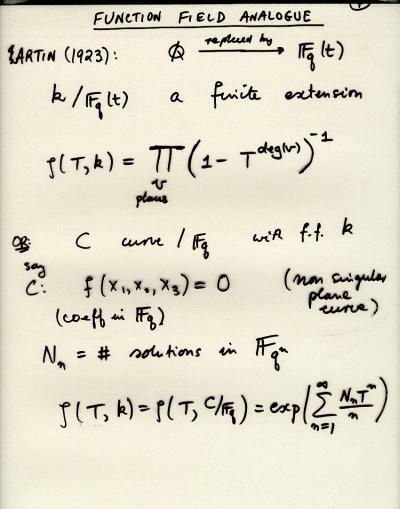 FUNCTION FIELD ANALOGUE
ARTIN (1923): ℚ replaced by → 𝔽q(t)
k / 𝔽q(t) a finite extension
ζ(T, k) = ∏ (1 - T^deg(v))^-1
v
places
OR: C curve / 𝔽q with f.f. k
say
C: f(x₁, x₂, x₃) = 0 (non singular
plane
curve)
(coeff in 𝔽q)
Nn = # solutions in 𝔽qⁿ
ζ(T, k) = ζ(T, C/𝔽q) = exp(∑ n=1 ∞ NnTⁿ/n)